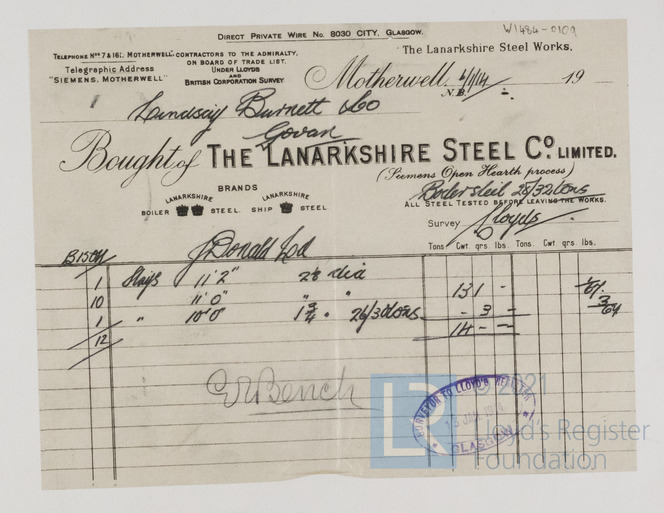 W1484-0109
DIRECT PRIVATE WIRE No. 8030 CITY, GLASGOW.
TELEPHONE Nos 7 & 161. MOTHERWELL.
Telegraphic Address
"SIEMENS, MOTHERWELL"
CONTRACTORS TO THE ADMIRALTY,
ON BOARD OF TRADE LIST.
UNDER LLOYDS
AND
BRITISH CORPORATION SURVEY
The Lanarkshire Steel Works,
Motherwell, 6/1/14 19
N.B.
Lindsay Burnett & Co
Govan
Bought of THE LANARKSHIRE STEEL Co. LIMITED.
(Siemens Open Hearth process)
BRANDS
LANARKSHIRE LANARKSHIRE
BOILER STEEL. SHIP STEEL
Boiler steel 28/32 tons
ALL STEEL TESTED BEFORE LEAVING THE WORKS.
Survey Lloyds
Tons Cwt. qrs lbs. Tons. Cwt. qrs. lbs.
J Donald Ltd
1 Stays 11'2" 2⅞ dia
10 11'0" " " 13 1 -
1 " 10'0" 1¾ " 26/30 tons - 3 -
12 14 - -
SURVEYOR TO LLOYD'S REGISTER
GLASGOW
LR © 2021
Lloyd's Register
Foundation